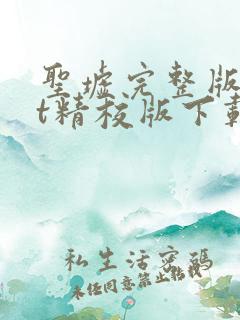 聖墟完整版
t精校版下載
私生活密碼
未經同意禁止轉載